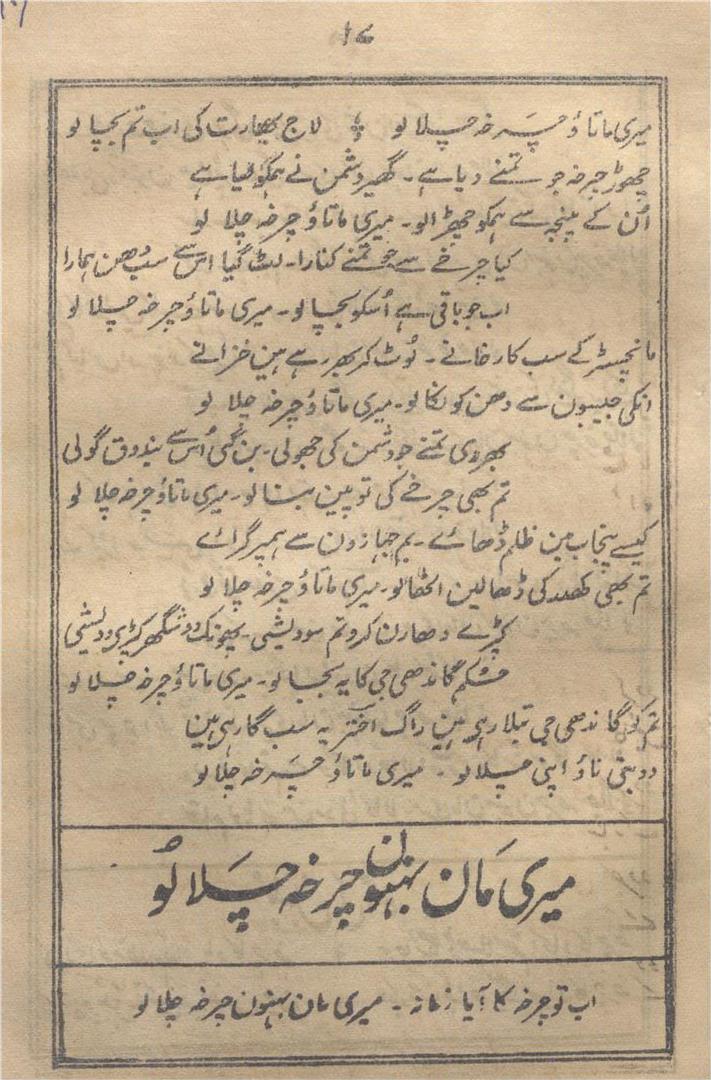 ۱۶
میری ماتاؤ چرخہ چلالو ؛ لاج بھارت کی اب تم بچپالو
چھوڑ چرخہ جو تمنے دیا ہے ۔ گھیر دشمن نے ہمکو لیا ہے
اُن کے پنجہ سے ہمکو چھڑالو ۔ میری ماتاؤ چرخہ چلا لو
کیا چرخے سے جو تمنے کنارا ۔ لٹ گیا اس سے سب دھن ہمارا
اب جو باقی ہے اُسکو بچپالو ۔ میری ماتاؤ چرخہ چلالو
مانچسٹر کے سب کارخانے ۔ لُوٹ کر بھر رہے ہین خزانے
انکی جیبون سے دھن کو نکالو ۔ میری ماتاؤ چرخہ چلا لو
بھردی تمنے جو دشمن کی جھولی ۔ بن گئی اُس سے بندوق گولی
تم بھی چرخے کی توپین بنالو ۔ میری ماتاؤ چرخہ چلا لو
کیسے پنجاب مین ظلم ڈھائے ۔ بم جہازون سے ہمپر گرائے
تم بھی کھدر کی ڈھالین اٹھالو ۔ میری ماتاؤ چرخہ چلا لو
کپڑے دھارن کرو تم سودیشی ۔ پھونک دو
حکم گاندھی جی کا یہ بجالو ۔ میری ماتاؤ چرخہ چلالو
تم کو گاندھی جی بتلا رہی ہین راگ اختر یہ سب گا رہی ہین
ڈوبتی ناؤ اپنی چلالو ۔ میری ماتاؤ چرخہ چلا لو
میری مان بہنون چرخہ چلا لو
اب تو چرخہ کا آیا زمانہ ۔ میری مان بہنون چرخہ چلا لو